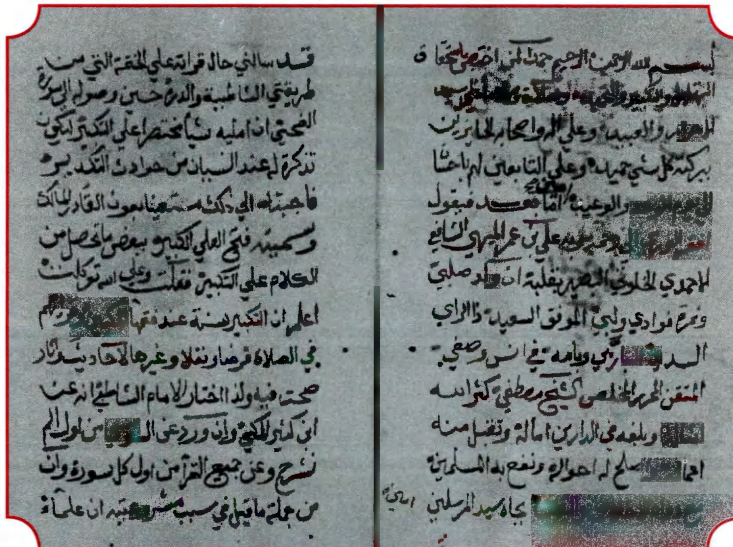 بسم الله الرحمن الرحيم حمدا لمن اختص باستحقاق
والعبيد وعلي اله واصحابه الحايزين
ببركته كل شي حميد وعلي التابعين لهم باحسان
والوعيد اما بعد فيقول
علي بن عمر الميهي الشافعي
الاحمدي الخلوتي البصير بقلبه ان ولد صلبي
وثمرة فوادي ولبي الموفق السعيد ذا الراي
السديد في انس وصفي
المتقن المحرر المخلص الشيخ مصطفي كثر الله
وبلغه في الدارين اماله وتقبل منه
اعماله واصلح له احواله ونفع به المسلمين
بجاه سيد المرسلين امين
قد سالني حال قراته علي الختمة التي من
طريقتي الشاطبية والدرة حين وصوله الي سورة
الضحي ان امليه شيأ مختصرا علي التكبير ليكون
تذكرة له عند النسيان من حوادث التكدير
فاجبته الي ذلك مستعينا بعون القادر المالك
وسميته فتح العلي الكبير ببعض ما تحصل من
الكلام علي التكبير فقلت وعلي الله توكلت
اعلم ان التكبير سنة عند فقها
في الصلاة فرضا ونفلا وغيرها لاحاديث واثار
صحت فيه ولذا اختار الامام الشاطبي انه عن
ابن كثير المكي وان ورد عن من اول الم
نشرح وعن جميع القرا من اول كل سورة وان
من جملة ما قيل في سبب ان علماء